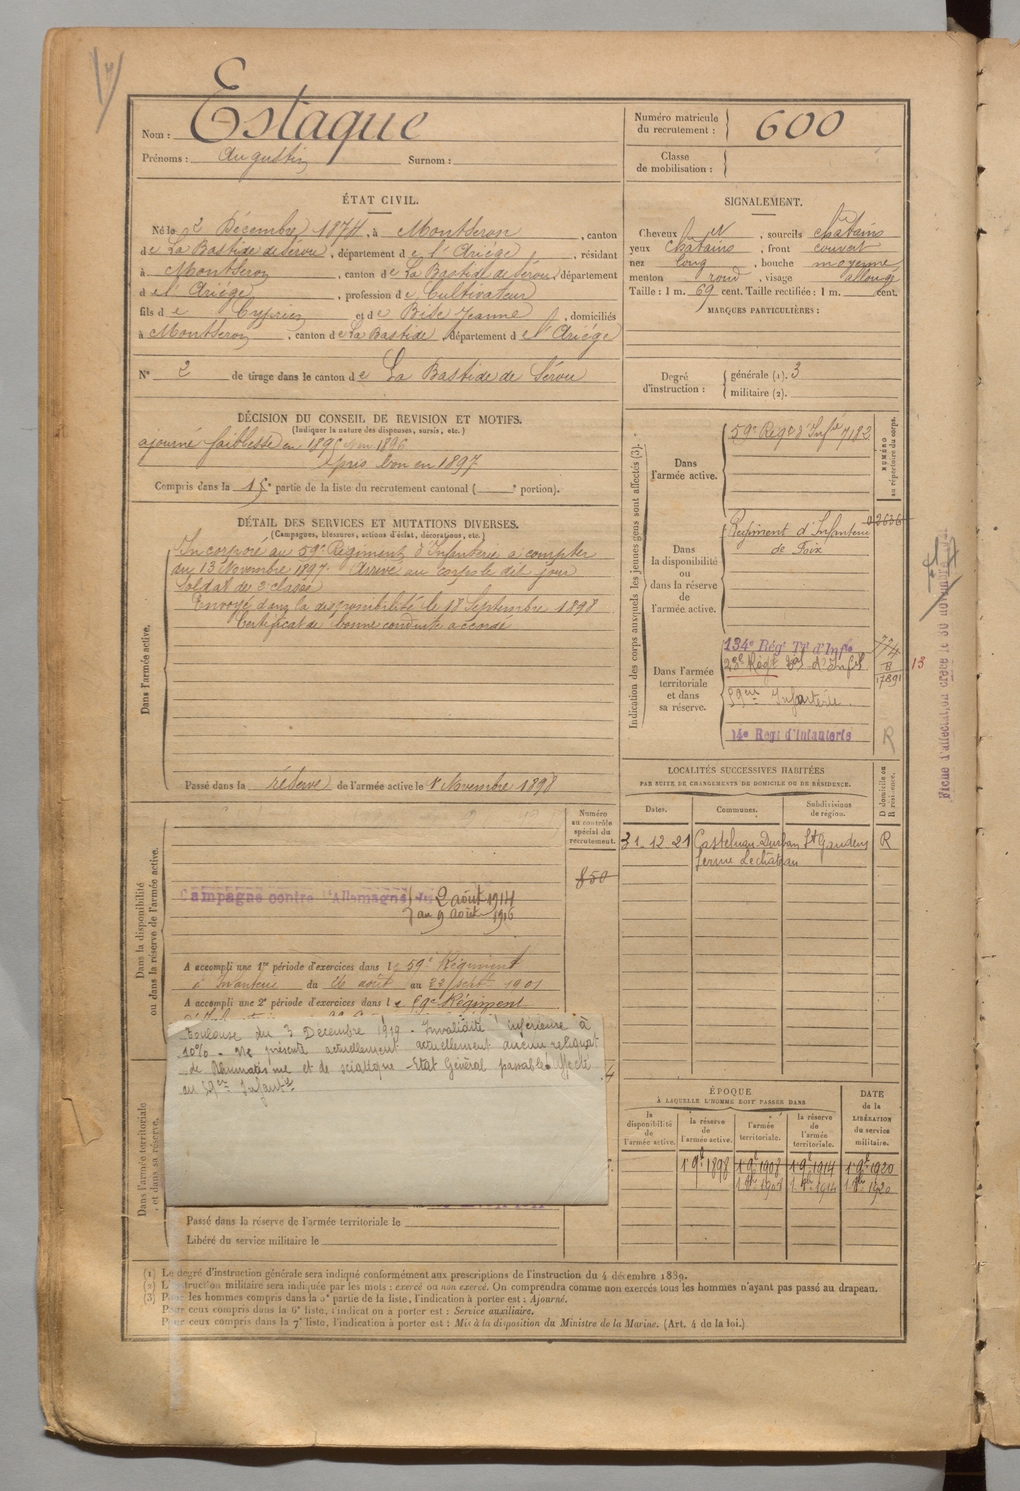 Estaque
Nom :
Prénoms : Augustin Surnom :
Numéro matricule du recrutement : 600
Classe de mobilisation :
ÉTAT CIVIL.
Né le 2 Décembre 1874, à Montseron, canton
de La Bastide de Sérou, département de l'Ariège, résidant
à Montseron, canton de La Bastide de Sérou, département
de l'Ariège, profession de Cultivateur
fils de Cyprien et de Bise Jeanne, domiciliés
à Montseron, canton de La Bastide, département de l'Ariège
N° 2 de tirage dans le canton de La Bastide de Sérou
SIGNALEMENT.
Cheveux N, sourcils chatains
yeux chatains, front couvert
nez long, bouche moyenne
menton rond, visage allongé
Taille : 1 m. 69 cent. Taille rectifiée : 1 m. cent.
MARQUES PARTICULIÈRES :
Degré d'instruction : générale (1). 3
militaire (2).
DÉCISION DU CONSEIL DE REVISION ET MOTIFS.
(Indiquer la nature des dispenses, sursis, etc.)
ajourné faiblesse en 1895 1896
pris bon en 1897
Compris dans la 1 partie de la liste du recrutement cantonal ( portion).
DÉTAIL DES SERVICES ET MUTATIONS DIVERSES.
(Campagnes, blessures, actions d'éclat, décorations, etc.)
Incorporé au 59e Régiment d'Infanterie a compter
du 13 Novembre 1897. Arrivé au corps le dit jour
Soldat de 2e classe
Envoyé dans la disponibilité le 18 Septembre 1898
Certificat de bonne conduite accordé
Dans l'armée active.
Passé dans la réserve de l'armée active le 1er Novembre 1898
Indication des corps auxquels les jeunes gens sont affectés (3).
Dans l'armée active.
59e Régt d'Infie 7182
NUMÉRO au répertoire du corps.
Dans la disponibilité ou dans la réserve de l'armée active.
Régiment d'Infanterie
de Foix
Dans l'armée territoriale et dans sa réserve.
134e Régt Tal d'Infie 774
17891
13
59eme Infanterie.
14e Régt d'Infanterie R
Fiche d'affectation de l'encre
LOCALITÉS SUCCESSIVES HABITÉES
PAR SUITE DE CHANGEMENTS DE DOMICILE OU DE RÉSIDENCE.
Dates. Communes. Subdivisions de région. D domicile ou R résidence.
31-12-21 Castelnau Durban St Gaudens R
ferme Lechateau
Dans la disponibilité ou dans la réserve de l'armée active.
Numéro au contrôle spécial du recrutement.
850
Campagne contre l'Allemagne du 2 août 1914
au 9 août 1916
A accompli une 1re période d'exercices dans le 59e Régiment
d'Infanterie du 26 août au 22 sept 1901
A accompli une 2e période d'exercices dans le 59e Régiment
Toulouse du 3 Décembre 1919 - Invalidité inférieure à
10% - Ne présente actuellement actuellement aucun reliquat
de Rhumatisme et de sciatique - Etat Général passable. Affecté
au 59eme Infantie
Dans l'armée territoriale et dans sa réserve.
Passé dans la réserve de l'armée territoriale le
Libéré du service militaire le
ÉPOQUE
À LAQUELLE L'HOMME DOIT PASSER DANS
DATE de la LIBÉRATION du service militaire.
la disponibilité de l'armée active. la réserve de l'armée active. l'armée territoriale. la réserve de l'armée territoriale.
1 9e 1898 1 9e 1908 1 9e 1914 1 9e 1920
(1) Le degré d'instruction générale sera indiqué conformément aux prescriptions de l'instruction du 4 décembre 1889.
(2) L'instruction militaire sera indiquée par les mots : exercé ou non exercé. On comprendra comme non exercés tous les hommes n'ayant pas passé au drapeau.
(3) Pour les hommes compris dans la 5e partie de la liste, l'indication à porter est : Ajourné.
Pour ceux compris dans la 6e liste, l'indication à porter est : Service auxiliaire.
Pour ceux compris dans la 7e liste, l'indication à porter est : Mis à la disposition du Ministre de la Marine. (Art. 4 de la loi.)